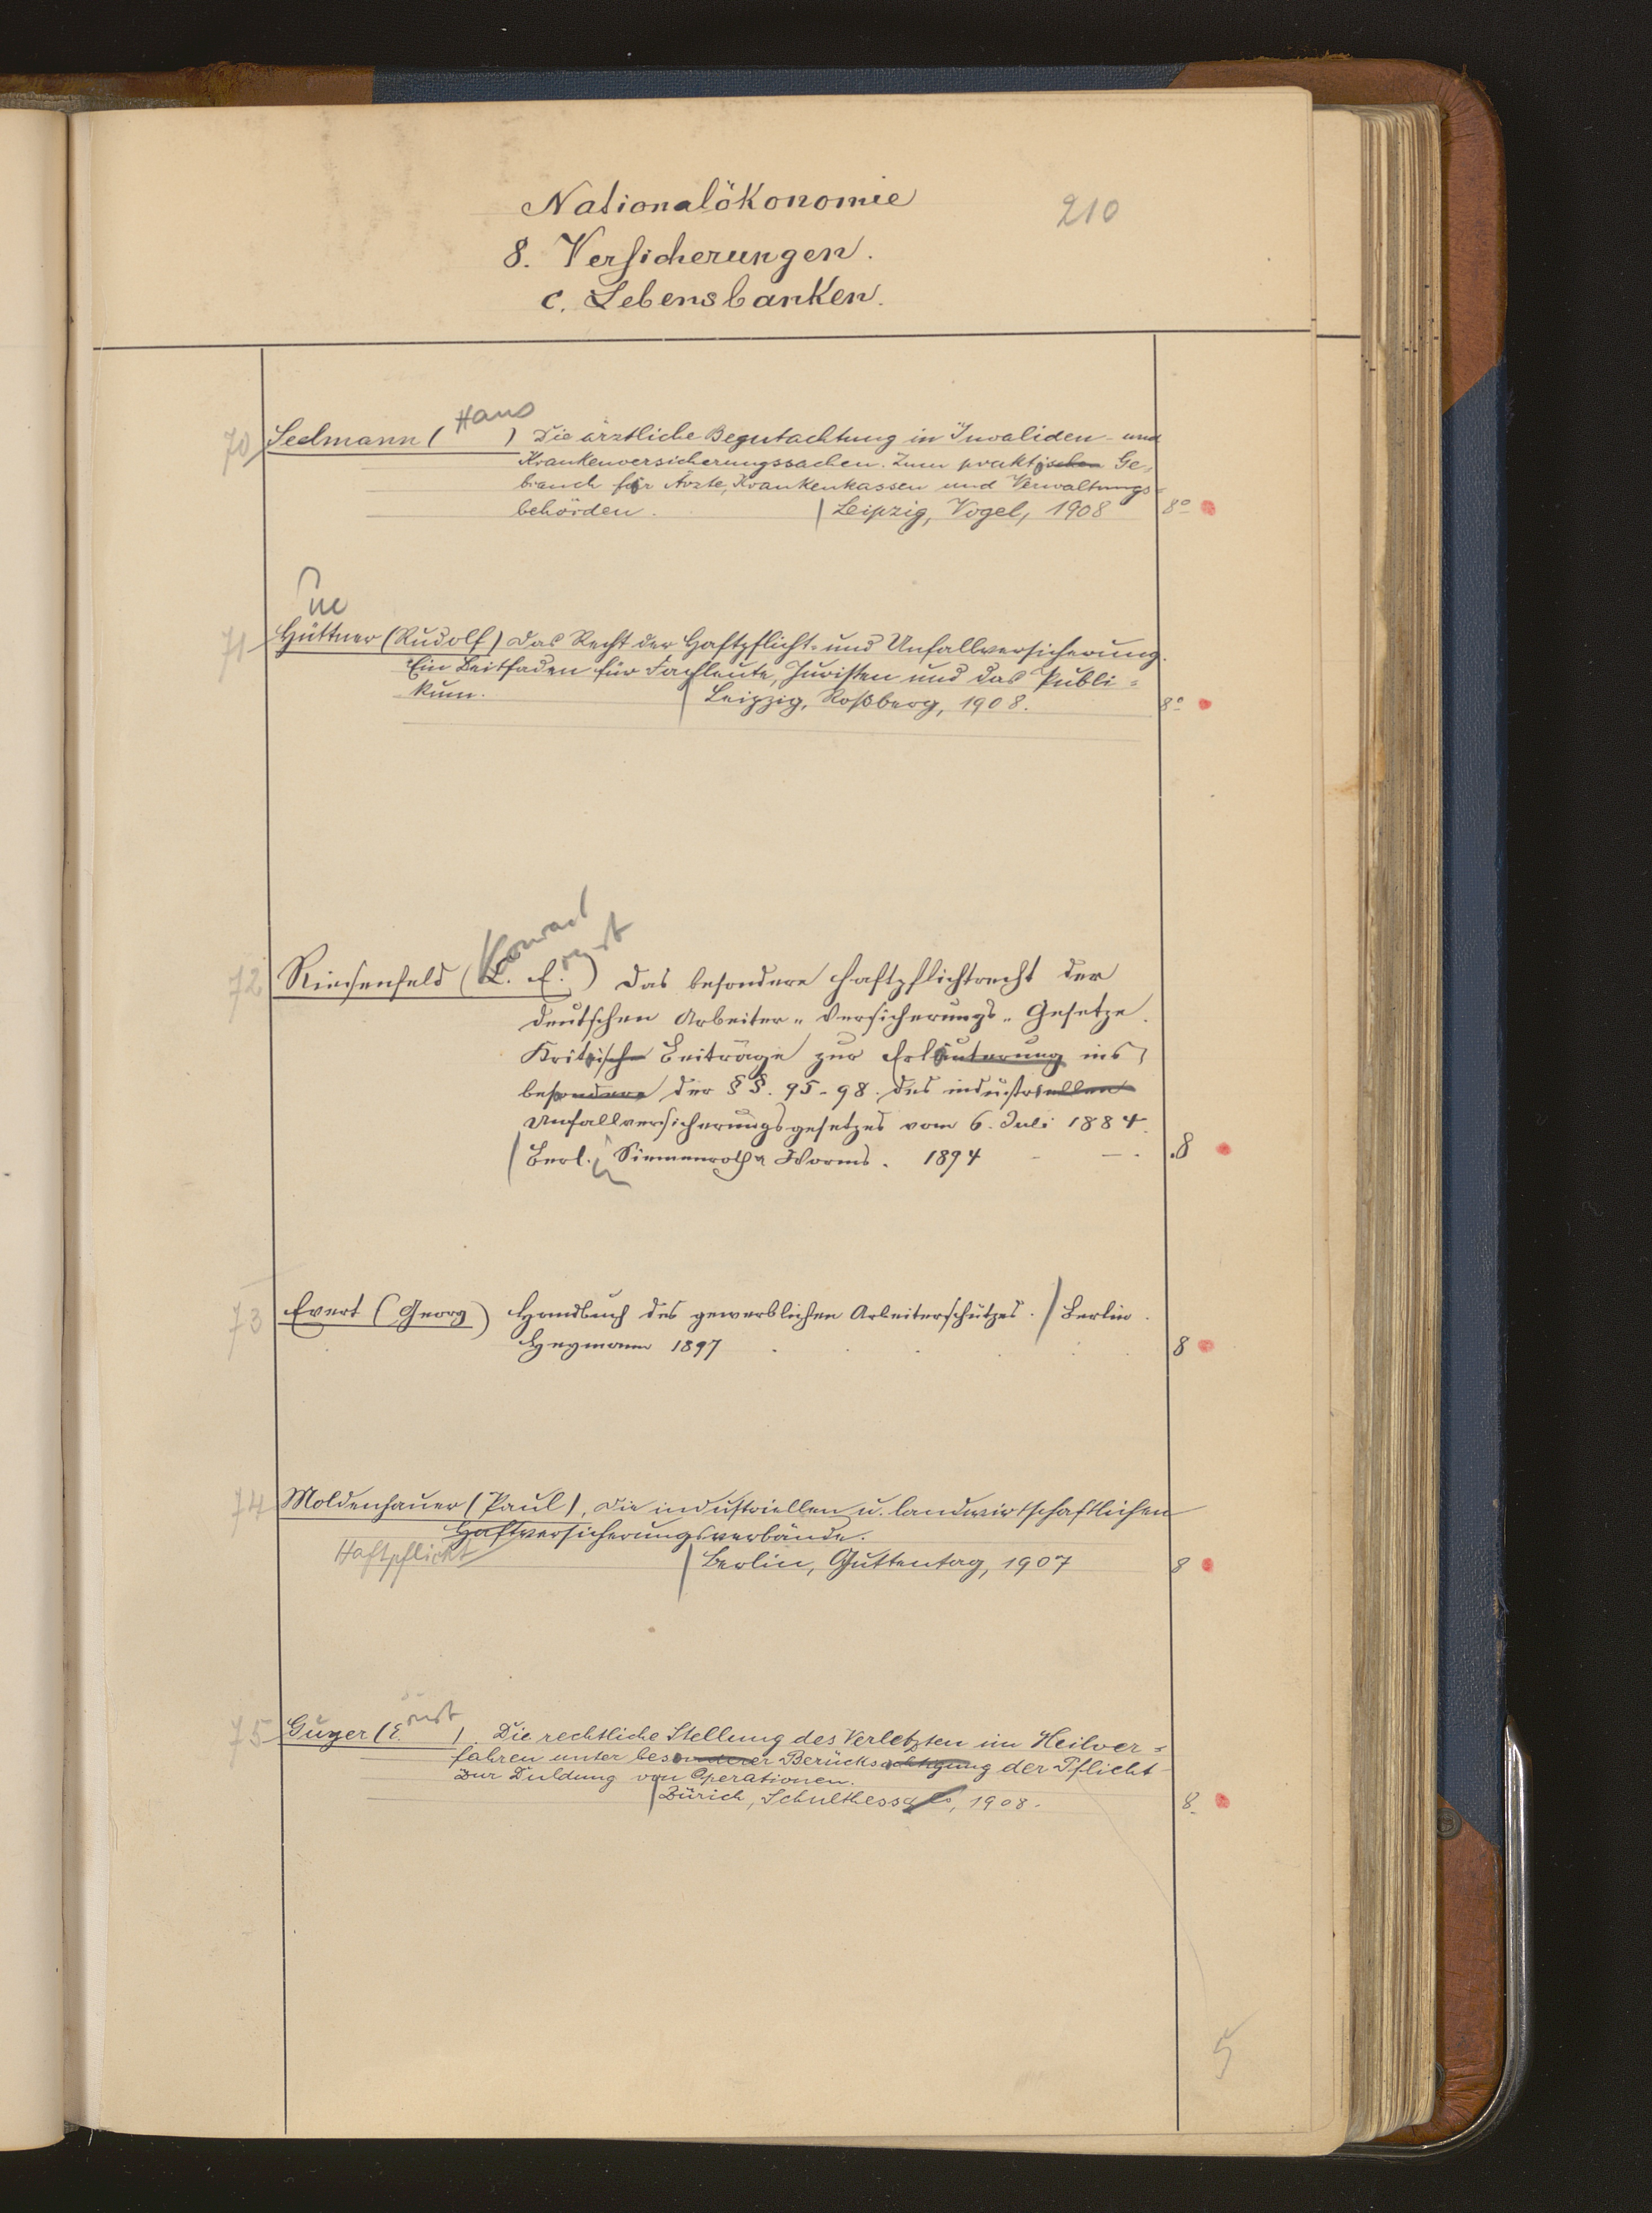 Nationalökonomie
210
8. Versicherungen.
c. Lebensbanken.
Hans
70 Seelmann ( ) Die ärztliche Begutachtung in Invaliden- und
Krankenversicherungssachen. Zum praktischen Ge-
brauch für Ärzte, Krankenkassen und Verwaltungs-
behörden. | Leipzig, Vogel, 1908 8°
ue
71 Hüttner (Rudolf) Das Recht der Haftpflicht- und Unfallversicherung.
Ein Leitfaden für Fachleute, Juristen und das Publi-
kum. | Leipzig, Roßberg, 1908. 8°
Konrad ernst
72 Riesenfeld ( . E.) Das besondere Haftpflichtrecht der
deutschen Arbeiter-Versicherungs-Gesetze.
Kritische Beiträge zur Erläuterung ins
besondere der §§. 95-98. des industriellen
Unfallversicherungsgesetzes vom 6. Juli 1884.
| Berl. Siemenroth & Worms. 1894 - - . 8
73 Evert (Georg) Handbuch des gewerblichen Arbeiterschutzes. / Berlin.
Heymann 1897 . . . . . . 8
74 Moldenhauer (Paul), Die industriellen u. landwirtschaftlichen
Haftversicherungsverbände.
Haftpflicht | Berlin, Guttentag, 1907 8
rnst
75 Guyer (E. ). Die rechtliche Stellung des Verletzten im Heilver-
fahren unter besonderer Berücksichtigung der Pflicht
zur Duldung von Operationen.
| Zürich, Schulthess & Co, 1908. 8
5